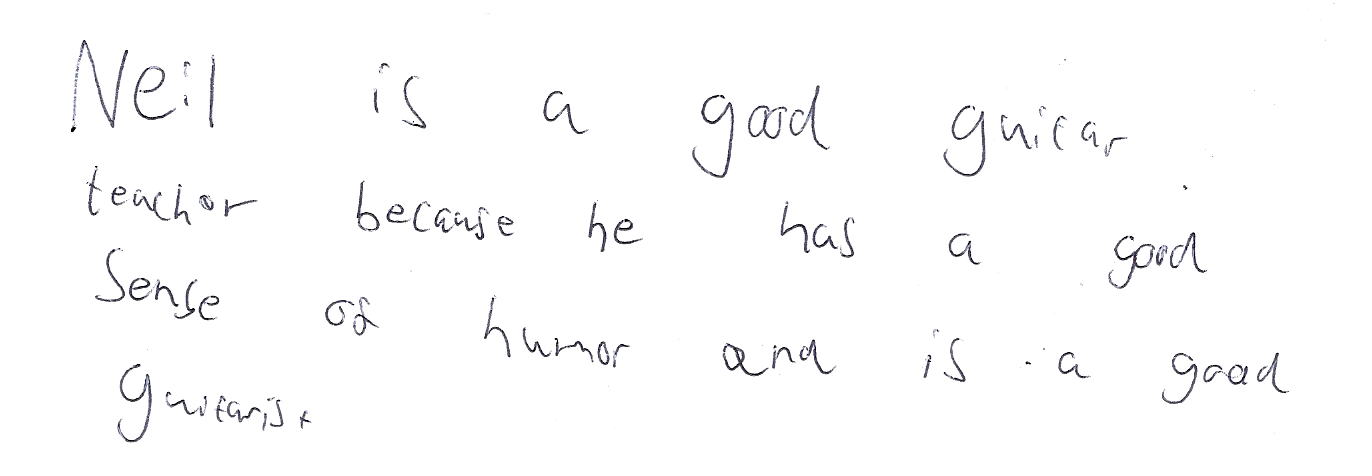 Neil is a good guitar
teachor because he has a good
Sense of humor and is a good
guitarist